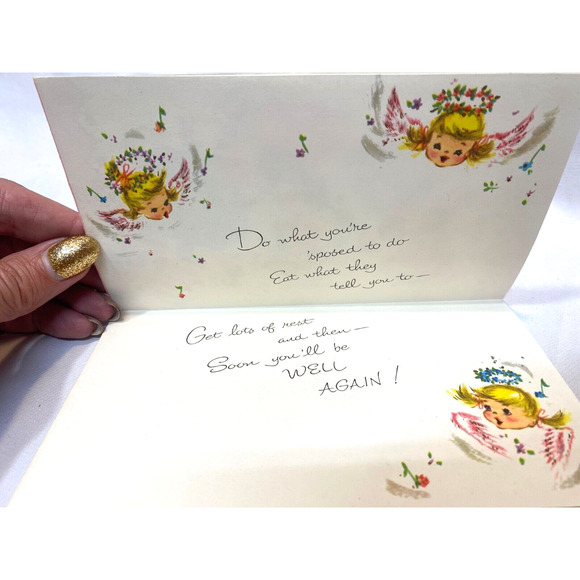 Do what you're
'sposed to do
Eat what they
tell you to—
Get lots of rest
and then—
Soon you'll be
WELL
AGAIN!